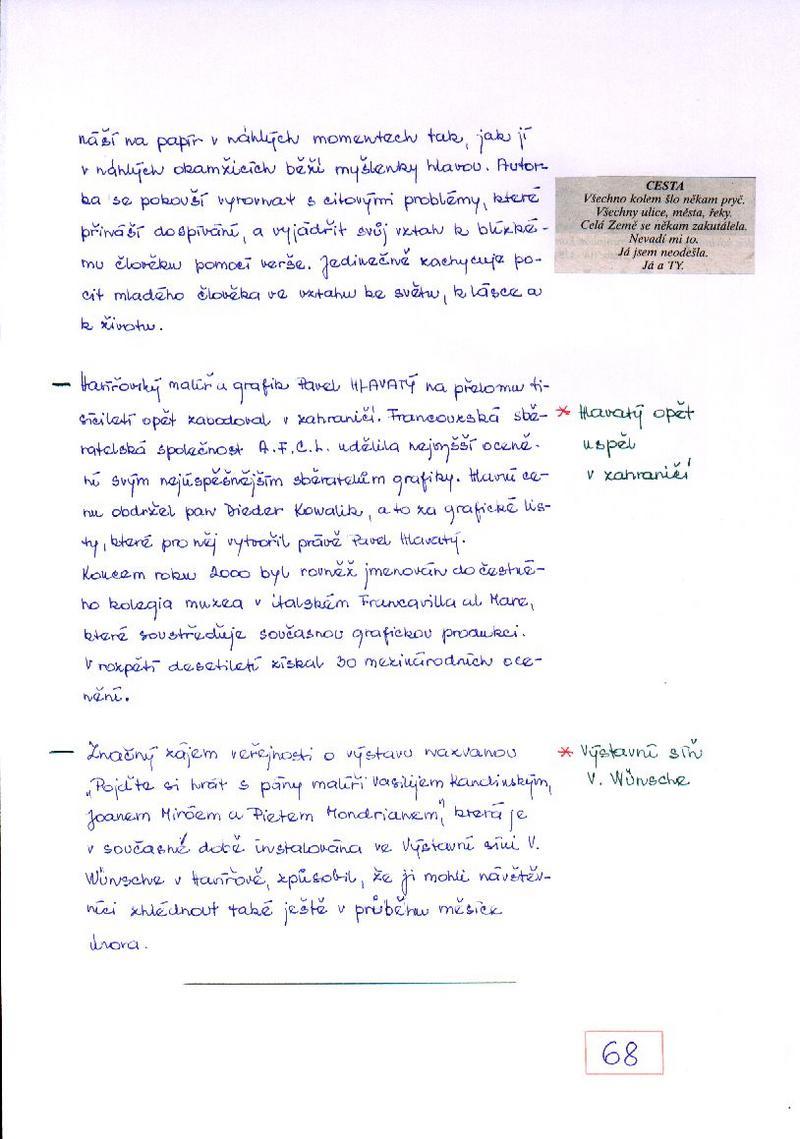 náší na papír v náhlých momentech tak, jak jí
v náhlých okamžicích běží myšlenky hlavou. Autor-
ka se pokouší vyrovnat s citovými problémy, které
přináší dospívání, a vyjádřit svůj vztah k blízké-
mu člověku pomocí verše. Jedinečně zachycuje po-
cit mladého člověka ve vztahu ke světu, k lásce a
k životu.
CESTA
Všechno kolem šlo někam pryč.
Všechny ulice, města, řeky.
Celá Země se někam zakutálela.
Nevadí mi to.
Já jsem neodešla.
Já a TY.
— Havířovský malíř a grafik Pavel HLAVATÝ na přelomu ti-
síciletí opět zabodoval v zahraničí. Francouzská sbě-
ratelská společnost A.F.C.L. udělila nejvyšší oceně-
ní svým nejúspěšnějším sběratelům grafiky. Hlavní ce-
nu obdržel pan Dieder Kowalik, a to za grafické lis-
ty, které pro něj vytvořil právě Pavel Hlavatý.
Koncem roku 2000 byl rovněž jmenován do čestné-
ho kolegia muzea v italském Francavilla al Mare,
které soustřeďuje současnou grafickou produkci.
V rozpětí desetiletí získal 30 mezinárodních oce-
nění.
* Hlavatý opět
uspěl
v zahraničí
— Značný zájem veřejnosti o výstavu nazvanou
„Pojďte si hrát s pány malíři Vasilijem Kandinským,
Joanem Miróem a Pietem Mondrianem", která je
v současné době instalována ve Výstavní síni V.
Wünsche v Havířově, způsobil, že ji mohli návštěv-
níci zhlédnout také ještě v průběhu měsíce
února.
* Výstavní síň
V. Wünsche
68